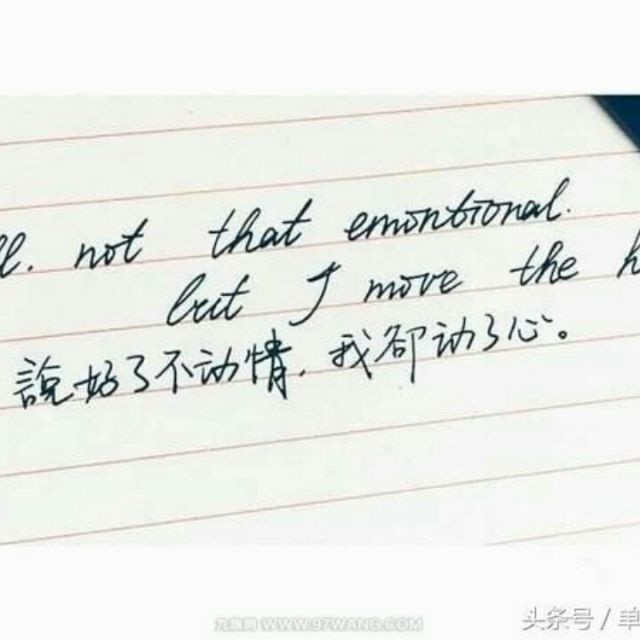 ll. not that emontional.
but I move the h
說好了不动情，我却动了心。
九旗网 WWW.97WANG.COM
头条号 / 单